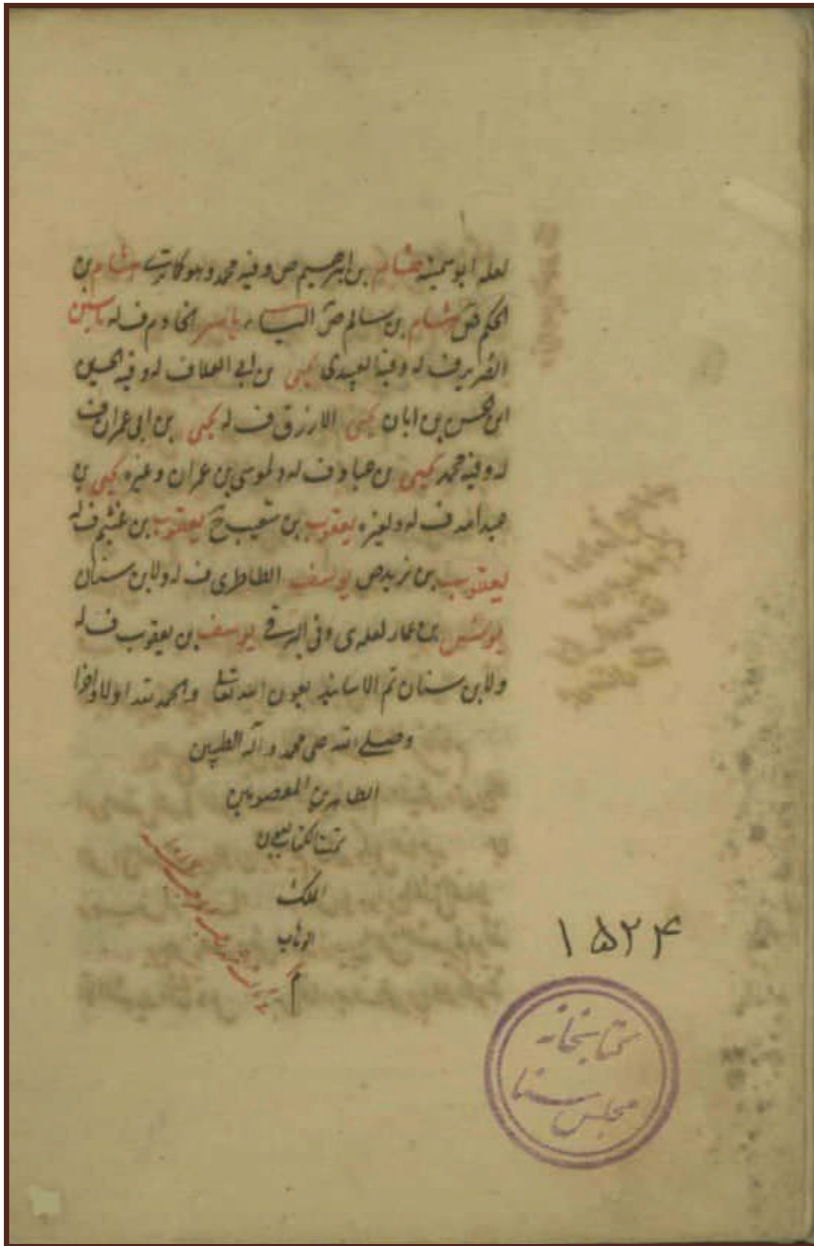 لعله ابو سمينه هشام بن ابرهيم ص وفيه محمد وهو كا هشام بن
الحكم هشام بن سالم ياسر الخادم ف له ياسين
الضرير ف له وفيه العبيدى يحيى بن ابي العلاف له وفيه الحسين
ابن الحسن بن ابان يحيى الازرق ف له يحيى بن ابى عمران ف
له وفيه محمد يحيى بن عباد ف له ولموسى بن عمران وغيره يحيى بن
عبد الله ف له ولغيره يعقوب بن شعيب يعقوب بن عثيم ف له
يعقوب بن يزيد ص يوسف الطاطرى ف له ولابن سنان
بن عمار لعله ى وفى يوسف بن يعقوب ف له
ولابن سنان تم الاسانيد بعون الله تعالى والحمد لله اولا واخرا
وصلى الله على محمد وآله الطيبين
الطاهرين المعصومين
تمت الكتاب بعون
الملك
الوهاب
م
۱۵۲۴
كتابخانه
مجلس سنا